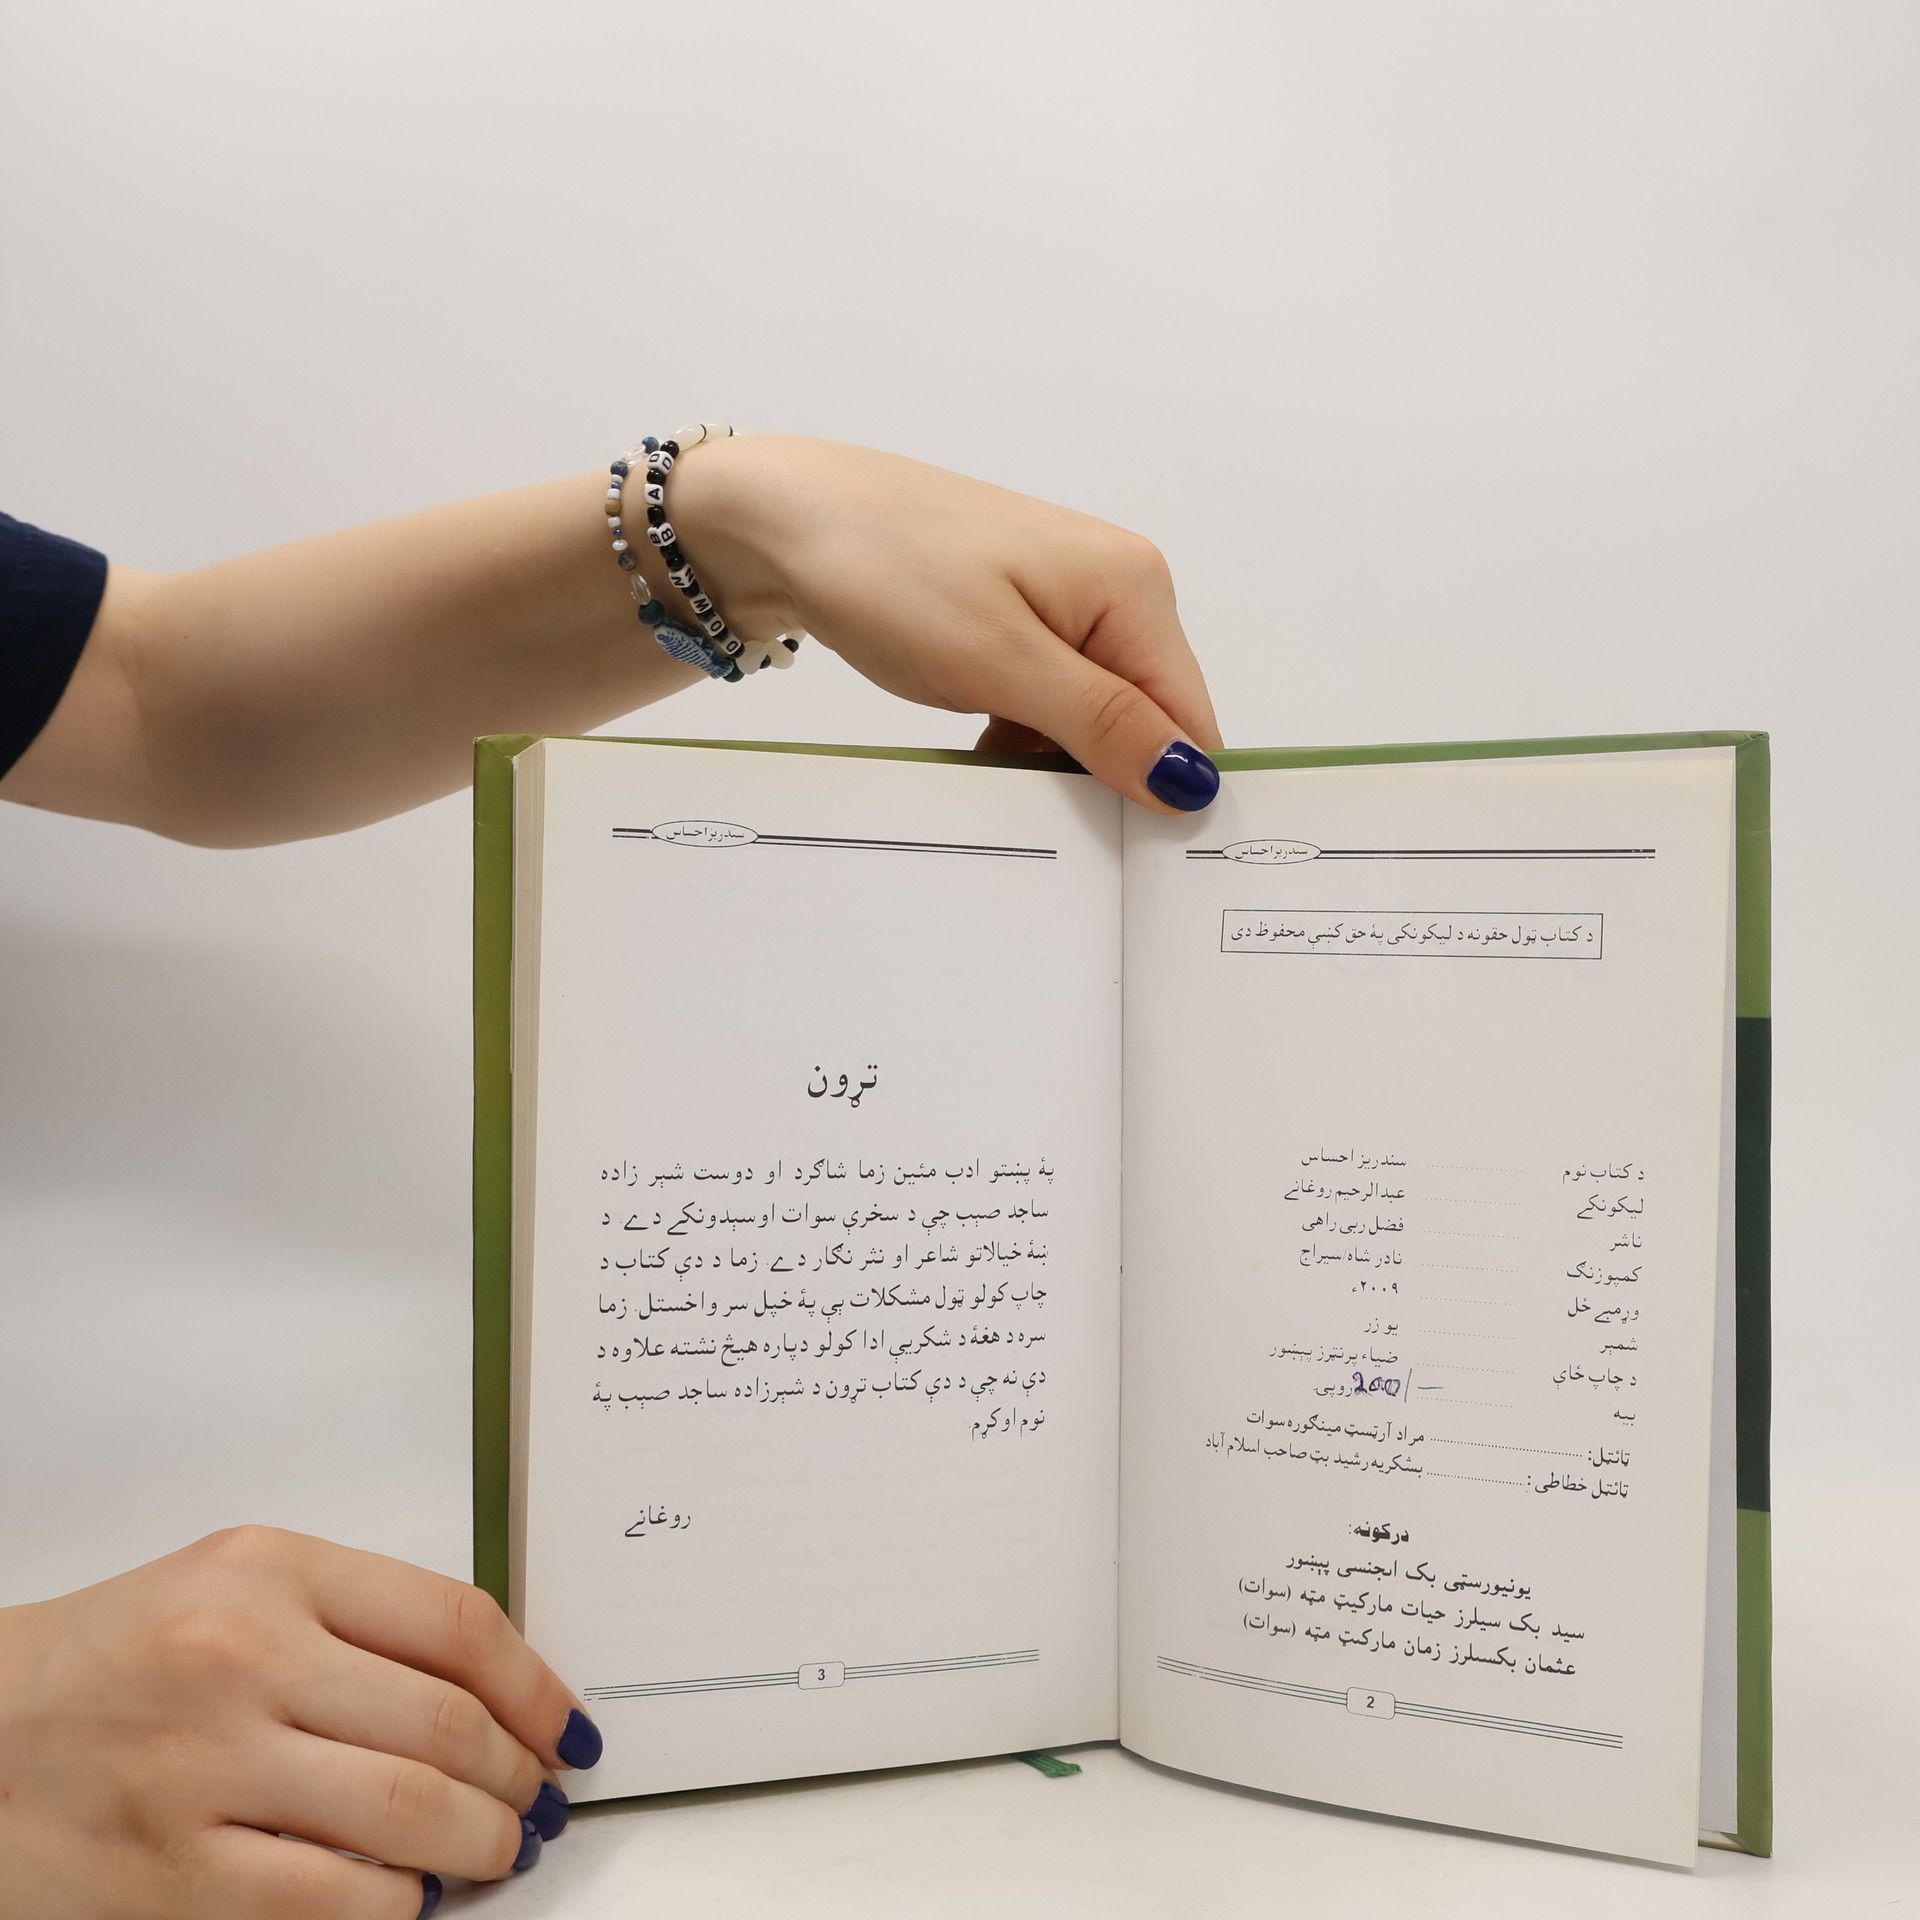 سندریز احساس
د کتاب ټول حقونه د لیکونکی پهٔ حق کښې محفوظ دی
د کتاب نوم ............ سندریز احساس
لیکونکے ............ عبدالرحیم روغانے
ناشر ............ فضل ربی راهی
کمپوزنګ ............ نادر شاه/سیراج
وړمبے ځل ............ ۲۰۰۹ء
شمېر ............ یو زر
د چاپ ځاې ............ ضیاء پرنټرز پېښور
بیه ............ 200/— روپی
ټائټل: ............ مراد آرټسټ مینګوره سوات
ټائټل خطاطی : ............ بشکریه رشید بټ صاحب اسلام آباد
درکونه:
یونیورسټی بک ایجنسی پېښور
سید بک سیلرز حیات مارکیټ مټه (سوات)
عثمان بکسیلرز زمان مارکیټ مټه (سوات)
2
سندریز احساس
تړون
پهٔ پښتو ادب مئین زما شاګرد او دوست شېر زاده
ساجد صېب چې د سخرې سوات اوسېدونکے دے. د
ښهٔ خیالاتو شاعر او نثر نګار دے. زما د دې کتاب د
چاپ کولو ټول مشکلات یې پهٔ خپل سر واخستل. زما
سره د هغهٔ د شکریې ادا کولو دپاره هیڅ نشته علاوه د
دې نه چې د دې کتاب تړون د شېرزاده ساجد صېب پهٔ
نوم اوکړم.
روغانے
3
BAD
WOOD